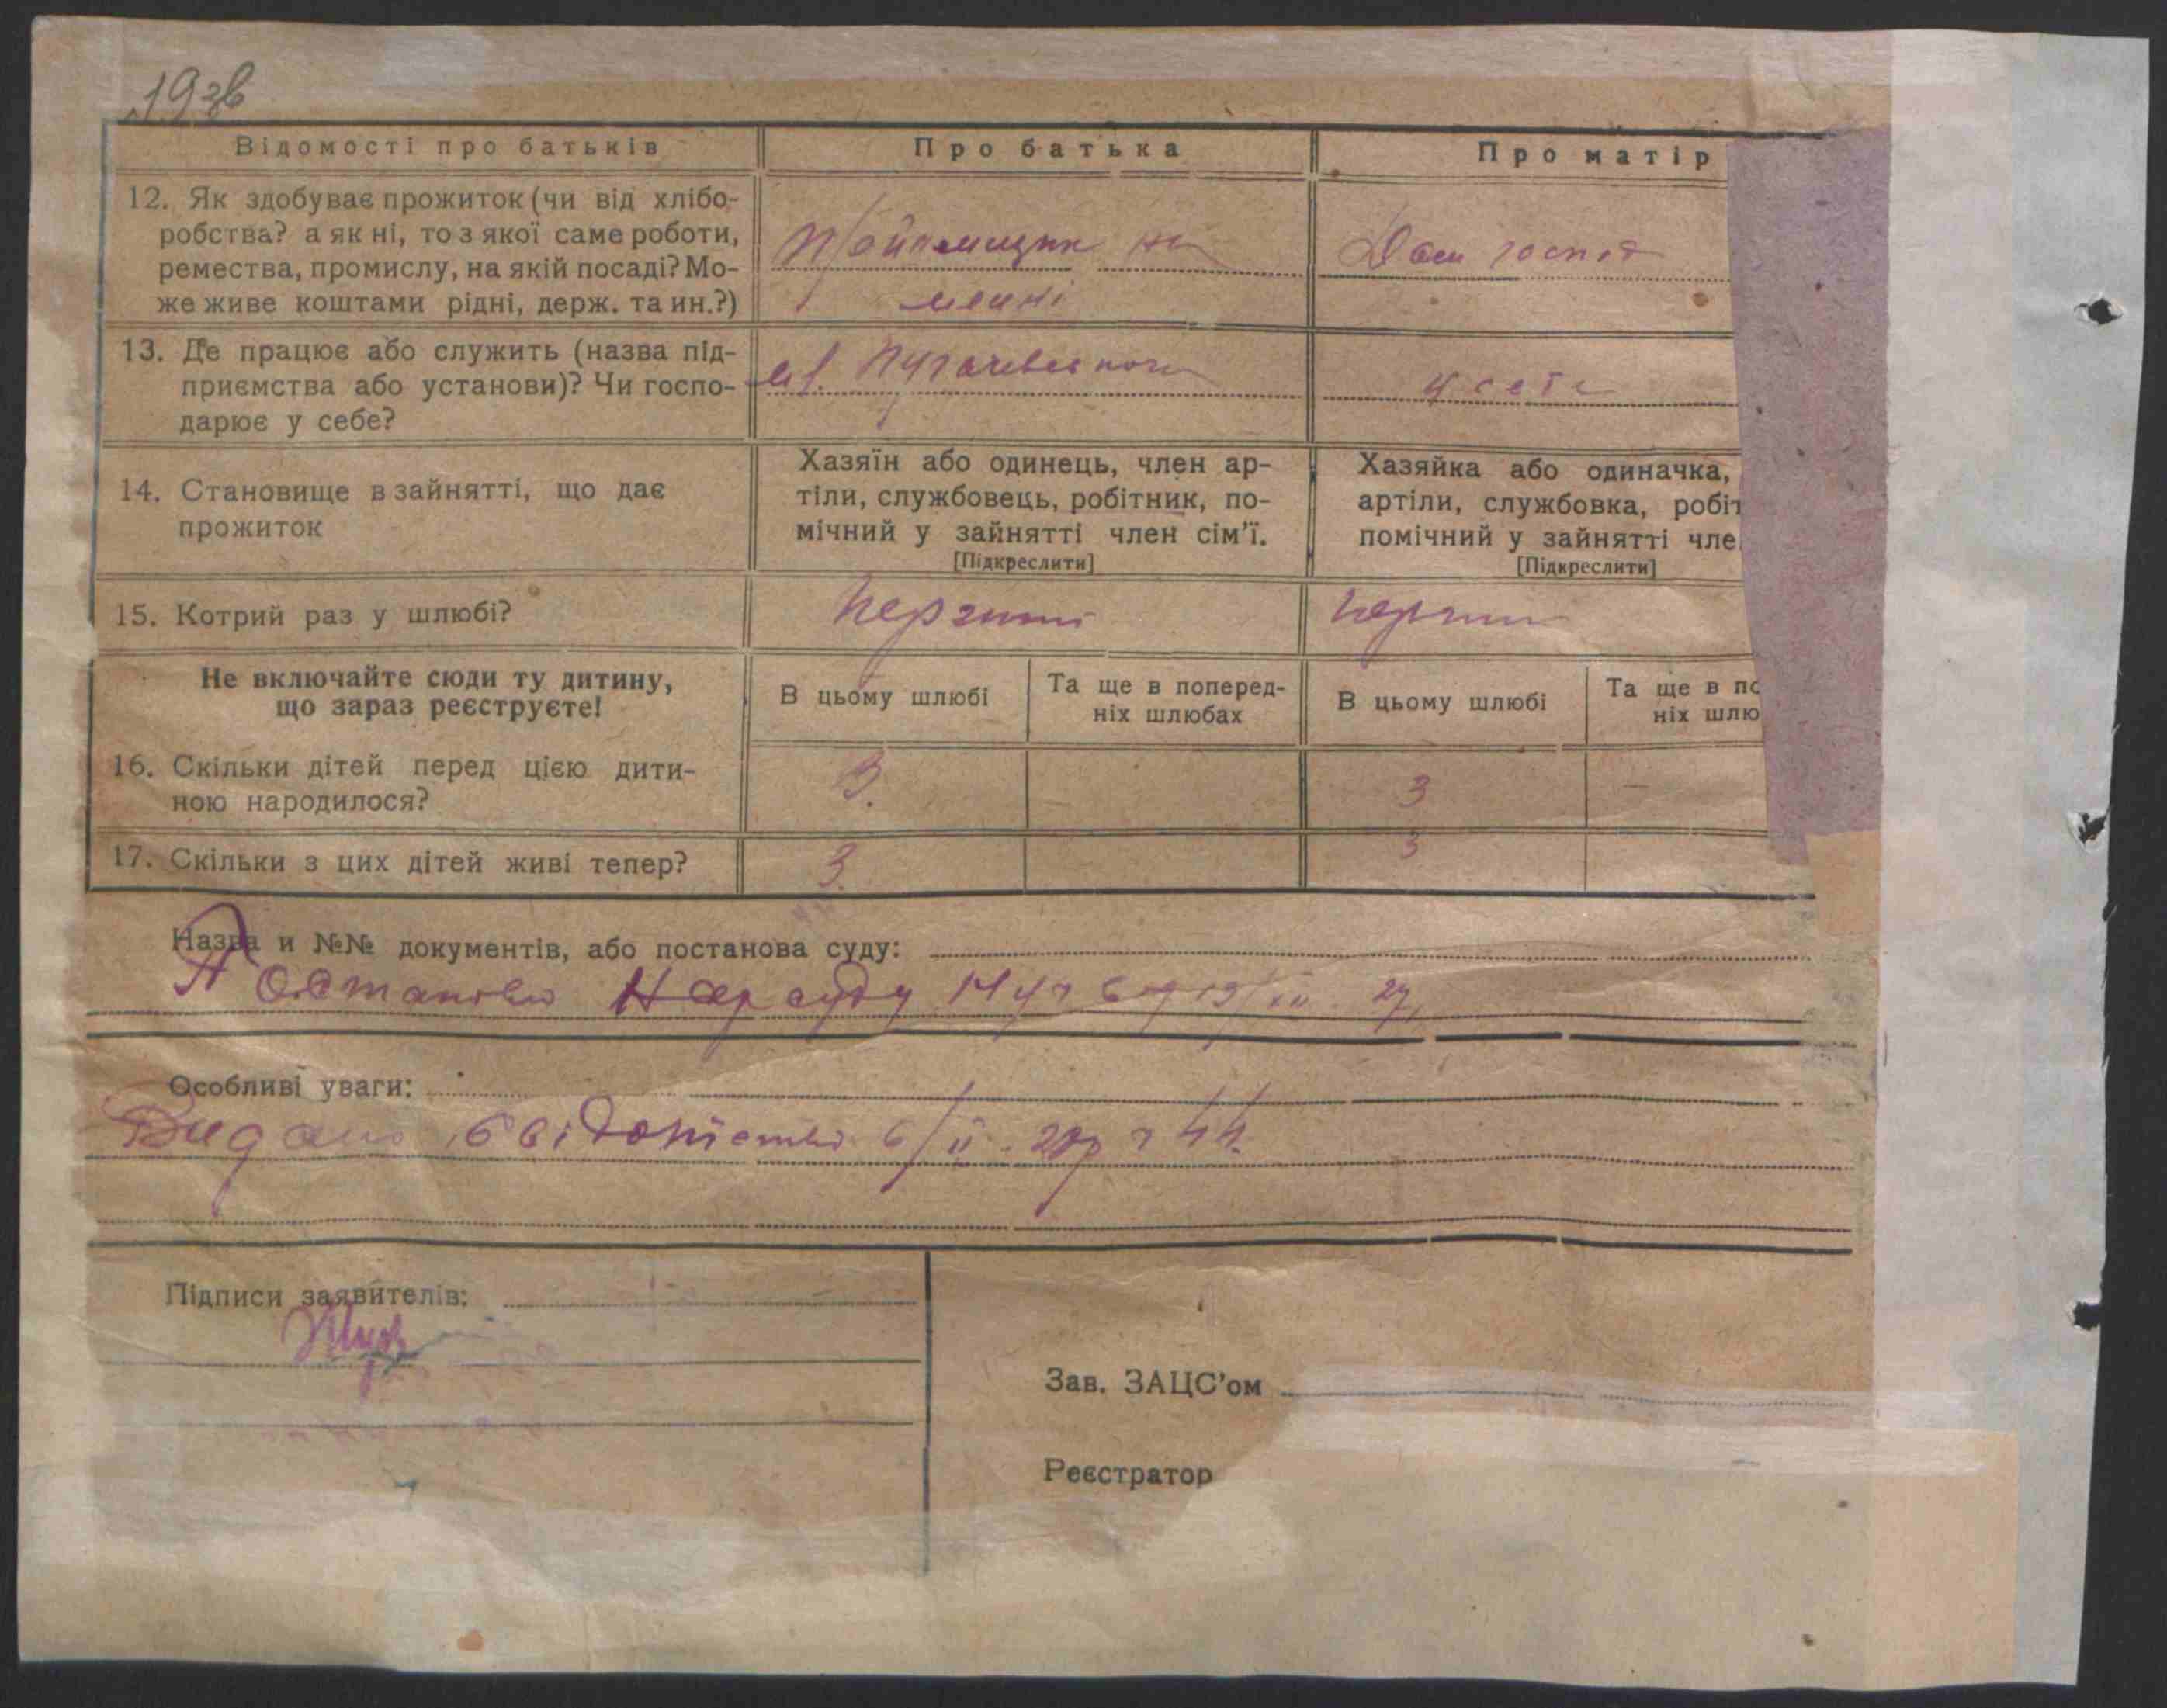 19зв
Відомості про батьків
Про батька
Про матір
12. Як здобуває прожиток (чи від хлібо-
робства? а як ні, то з якої саме роботи,
ремества, промислу, на якій посаді? Мо-
же живе коштами рідні, держ. та ин.?)
на
Дом господ
13. Де працює або служить (назва під-
приємства або установи)? Чи госпо-
дарює у себе?
14. Становище в зайнятті, що дає
прожиток
Хазяїн або одинець, член ар-
тіли, службовець, робітник, по-
мічний у зайнятті член сім'ї.
[Підкреслити]
Хазяйка або одиначка,
артіли, службовка, робіт
помічний у зайнятті чле
[Підкреслити]
15. Котрий раз у шлюбі?
Не включайте сюди ту дитину,
що зараз реєструєте!
В цьому шлюбі
Та ще в поперед-
ніх шлюбах
В цьому шлюбі
Та ще в по
ніх шлю
16. Скільки дітей перед цією дити-
ною народилося?
3.
3
—
17. Скільки з цих дітей живі тепер?
3.
3
Назва и №№ документів, або постанова суду:
Постанова Нарсуду
Особливі уваги:
Видано свідоцтво 6/II
Підписи заявителів:
Зав. ЗАЦС'ом
Реєстратор